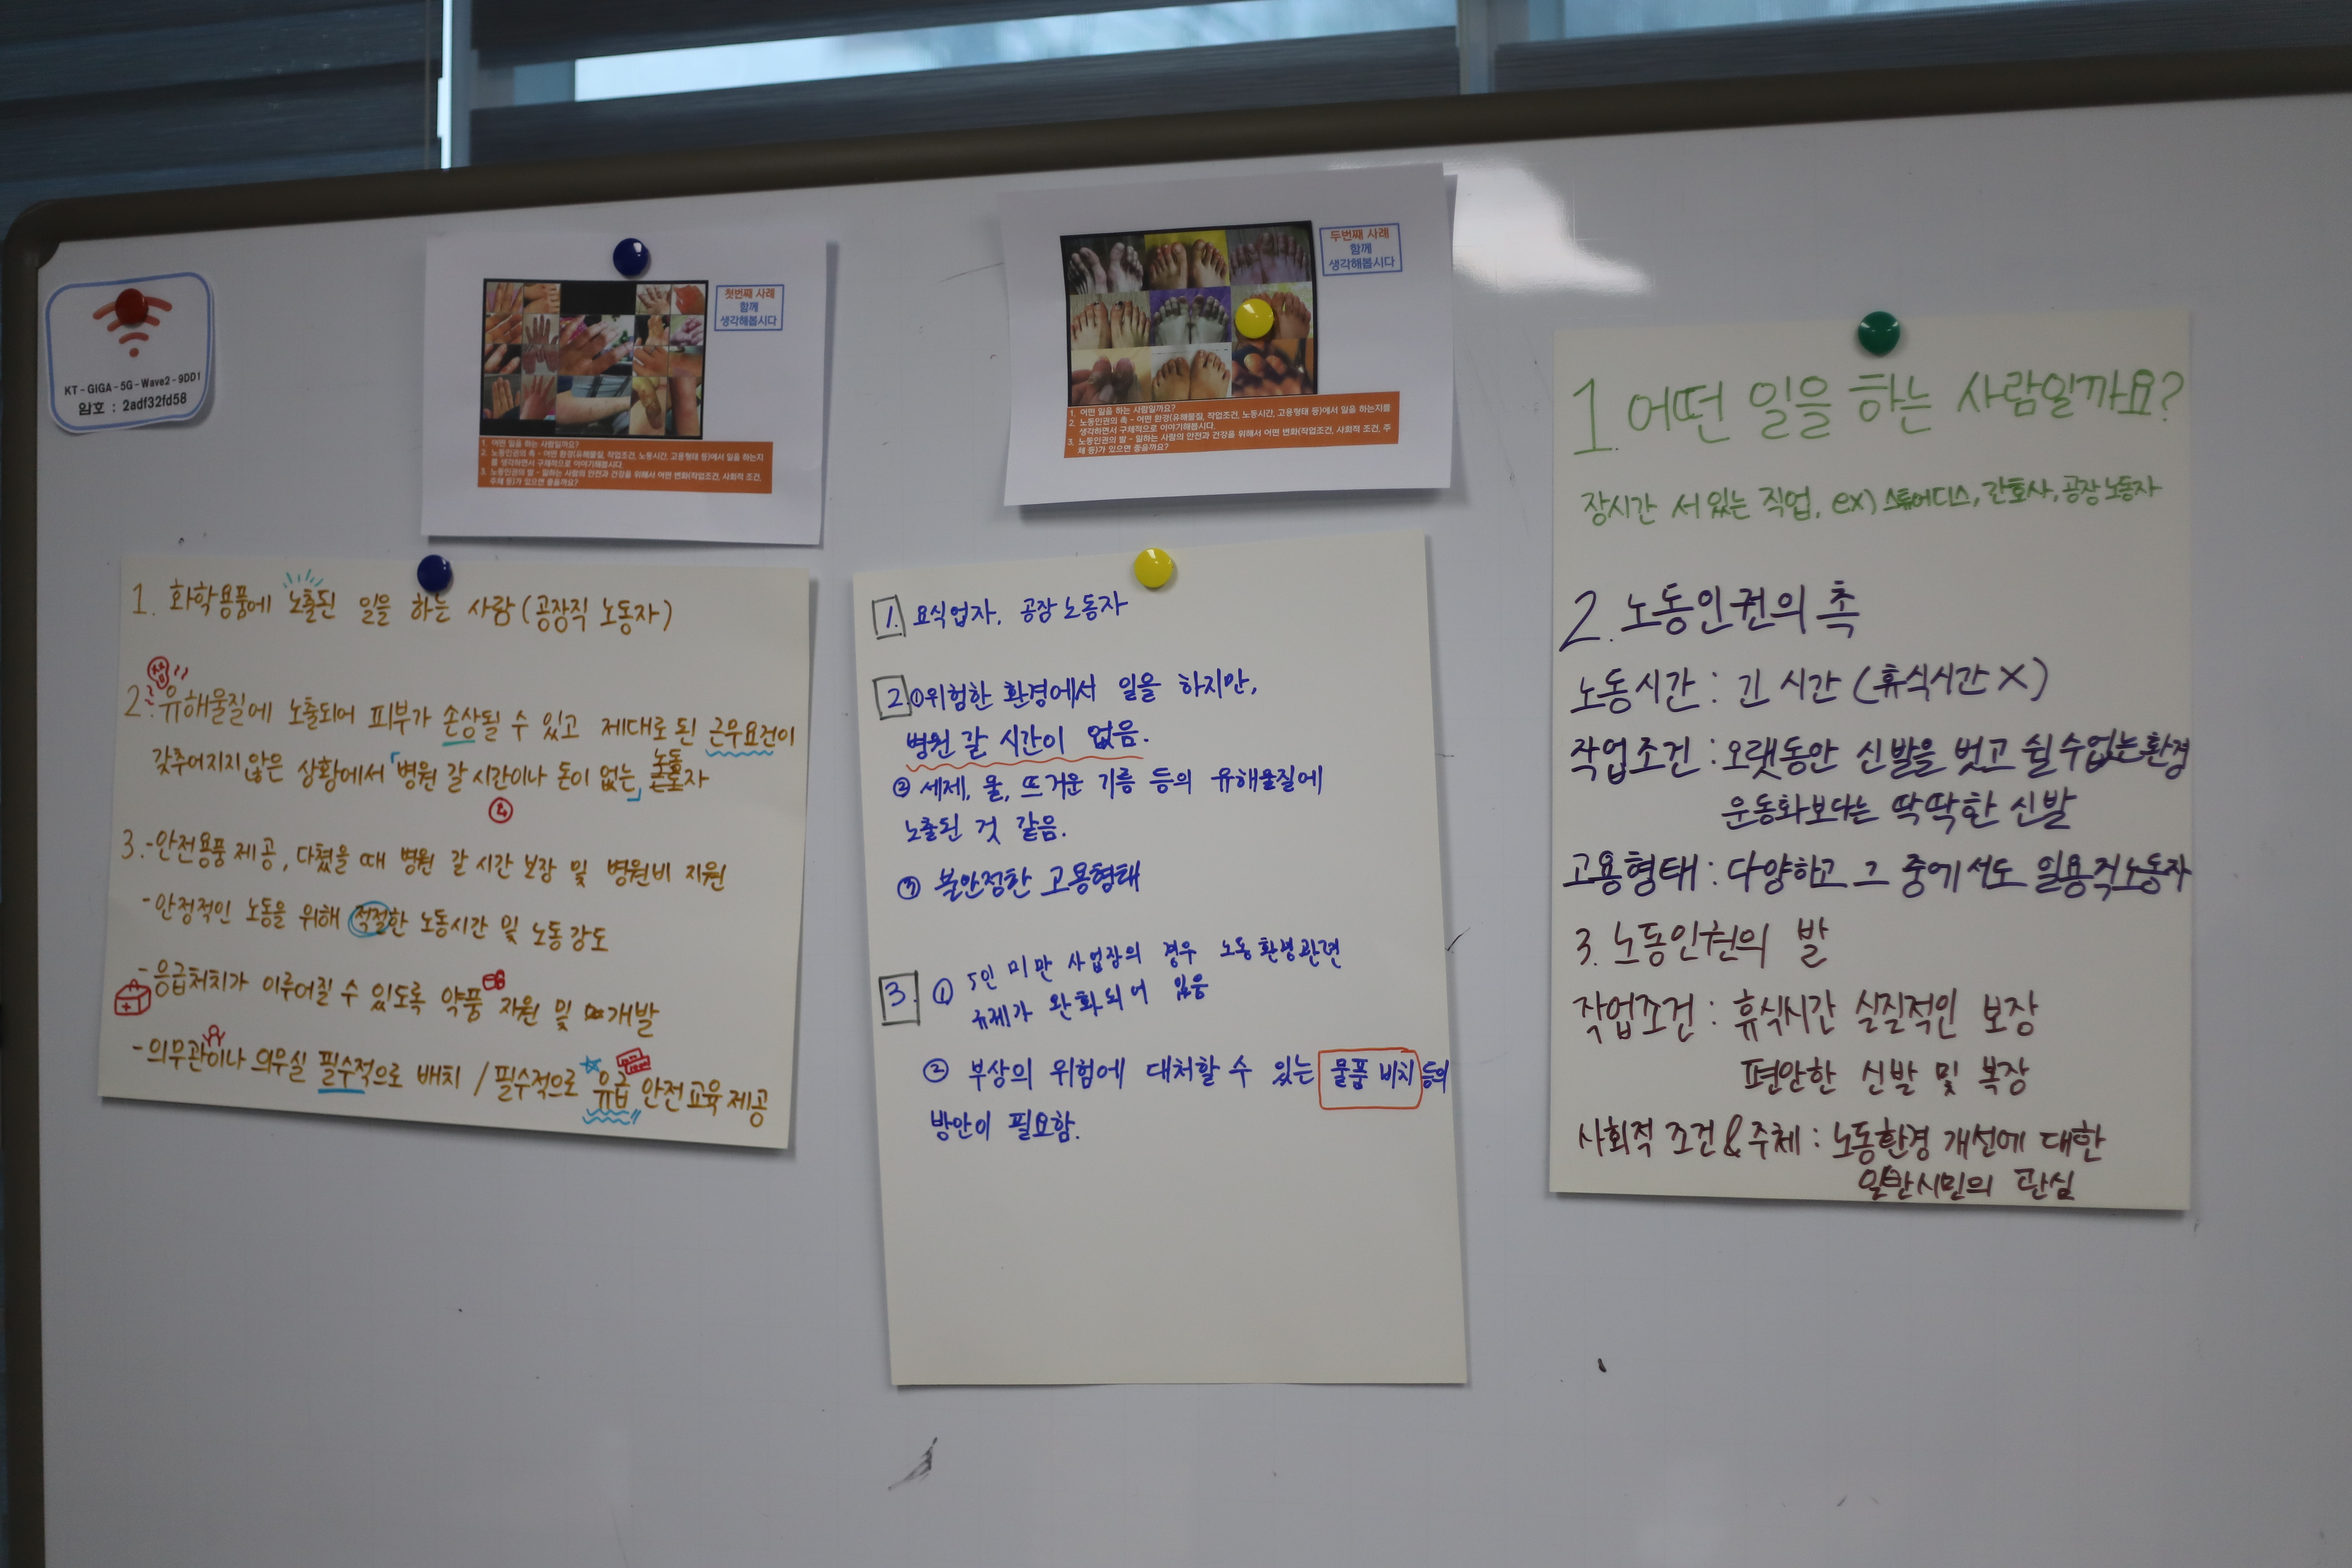 KT-GIGA-5G-Wave2-9DD1
암호 : 2adf32fd58
첫번째 사례
함께
생각해봅시다
1. 어떤 일을 하는 사람일까요?
2. 노동인권의 촉 - 어떤 환경(유해물질, 작업조건, 노동시간, 고용형태 등)에서 일을 하는지
를 생각하면서 구체적으로 이야기해봅시다.
3. 노동인권의 발 - 일하는 사람의 안전과 건강을 위해서 어떤 변화(작업조건, 사회적 조건,
주체 등)가 있으면 좋을까요?
두번째 사례
함께
생각해봅시다
1. 어떤 일을 하는 사람일까요?
2. 노동인권의 촉 - 어떤 환경(유해물질, 작업조건, 노동시간, 고용형태 등)에서 일을 하는지를
생각하면서 구체적으로 이야기해봅시다.
3. 노동인권의 발 - 일하는 사람의 안전과 건강을 위해서 어떤 변화(작업조건, 사회적 조건, 주
체 등)가 있으면 좋을까요?
1. 화학용품에 노출된 일을 하는 사람 (공장직 노동자)
2. 유해물질에 노출되어 피부가 손상될 수 있고 제대로 된 근무요건이
갖추어지지 않은 상황에서 「병원 갈 시간이나 돈이 없는」 노동자
3. -안전용품 제공, 다쳤을 때 병원 갈 시간 보장 및 병원비 지원
-안정적인 노동을 위해 적절한 노동시간 및 노동강도
-응급처치가 이루어질 수 있도록 약품 지원 및 개발
-의무관이나 의무실 필수적으로 배치 / 필수적으로 유급 안전교육 제공
1. 요식업자, 공장 노동자
2. ①위험한 환경에서 일을 하지만,
병원 갈 시간이 없음.
② 세제, 물, 뜨거운 기름 등의 유해물질에
노출된 것 같음.
③ 불안정한 고용형태
3. ① 5인 미만 사업장의 경우 노동환경관련
규제가 완화되어 있음
② 부상의 위험에 대처할 수 있는 물품 비치 등의
방안이 필요함.
1. 어떤 일을 하는 사람일까요?
장시간 서 있는 직업, ex) 스튜어디스, 간호사, 공장노동자
2. 노동인권의 촉
노동시간 : 긴 시간 (휴식시간 X)
작업조건 : 오랫동안 신발을 벗고 쉴 수 없는 환경
운동화보다는 딱딱한 신발
고용형태 : 다양하고 그 중에서도 일용직노동자
3. 노동인권의 발
작업조건 : 휴식시간 실질적인 보장
편안한 신발 및 복장
사회적 조건 & 주체 : 노동환경 개선에 대한
일반시민의 관심